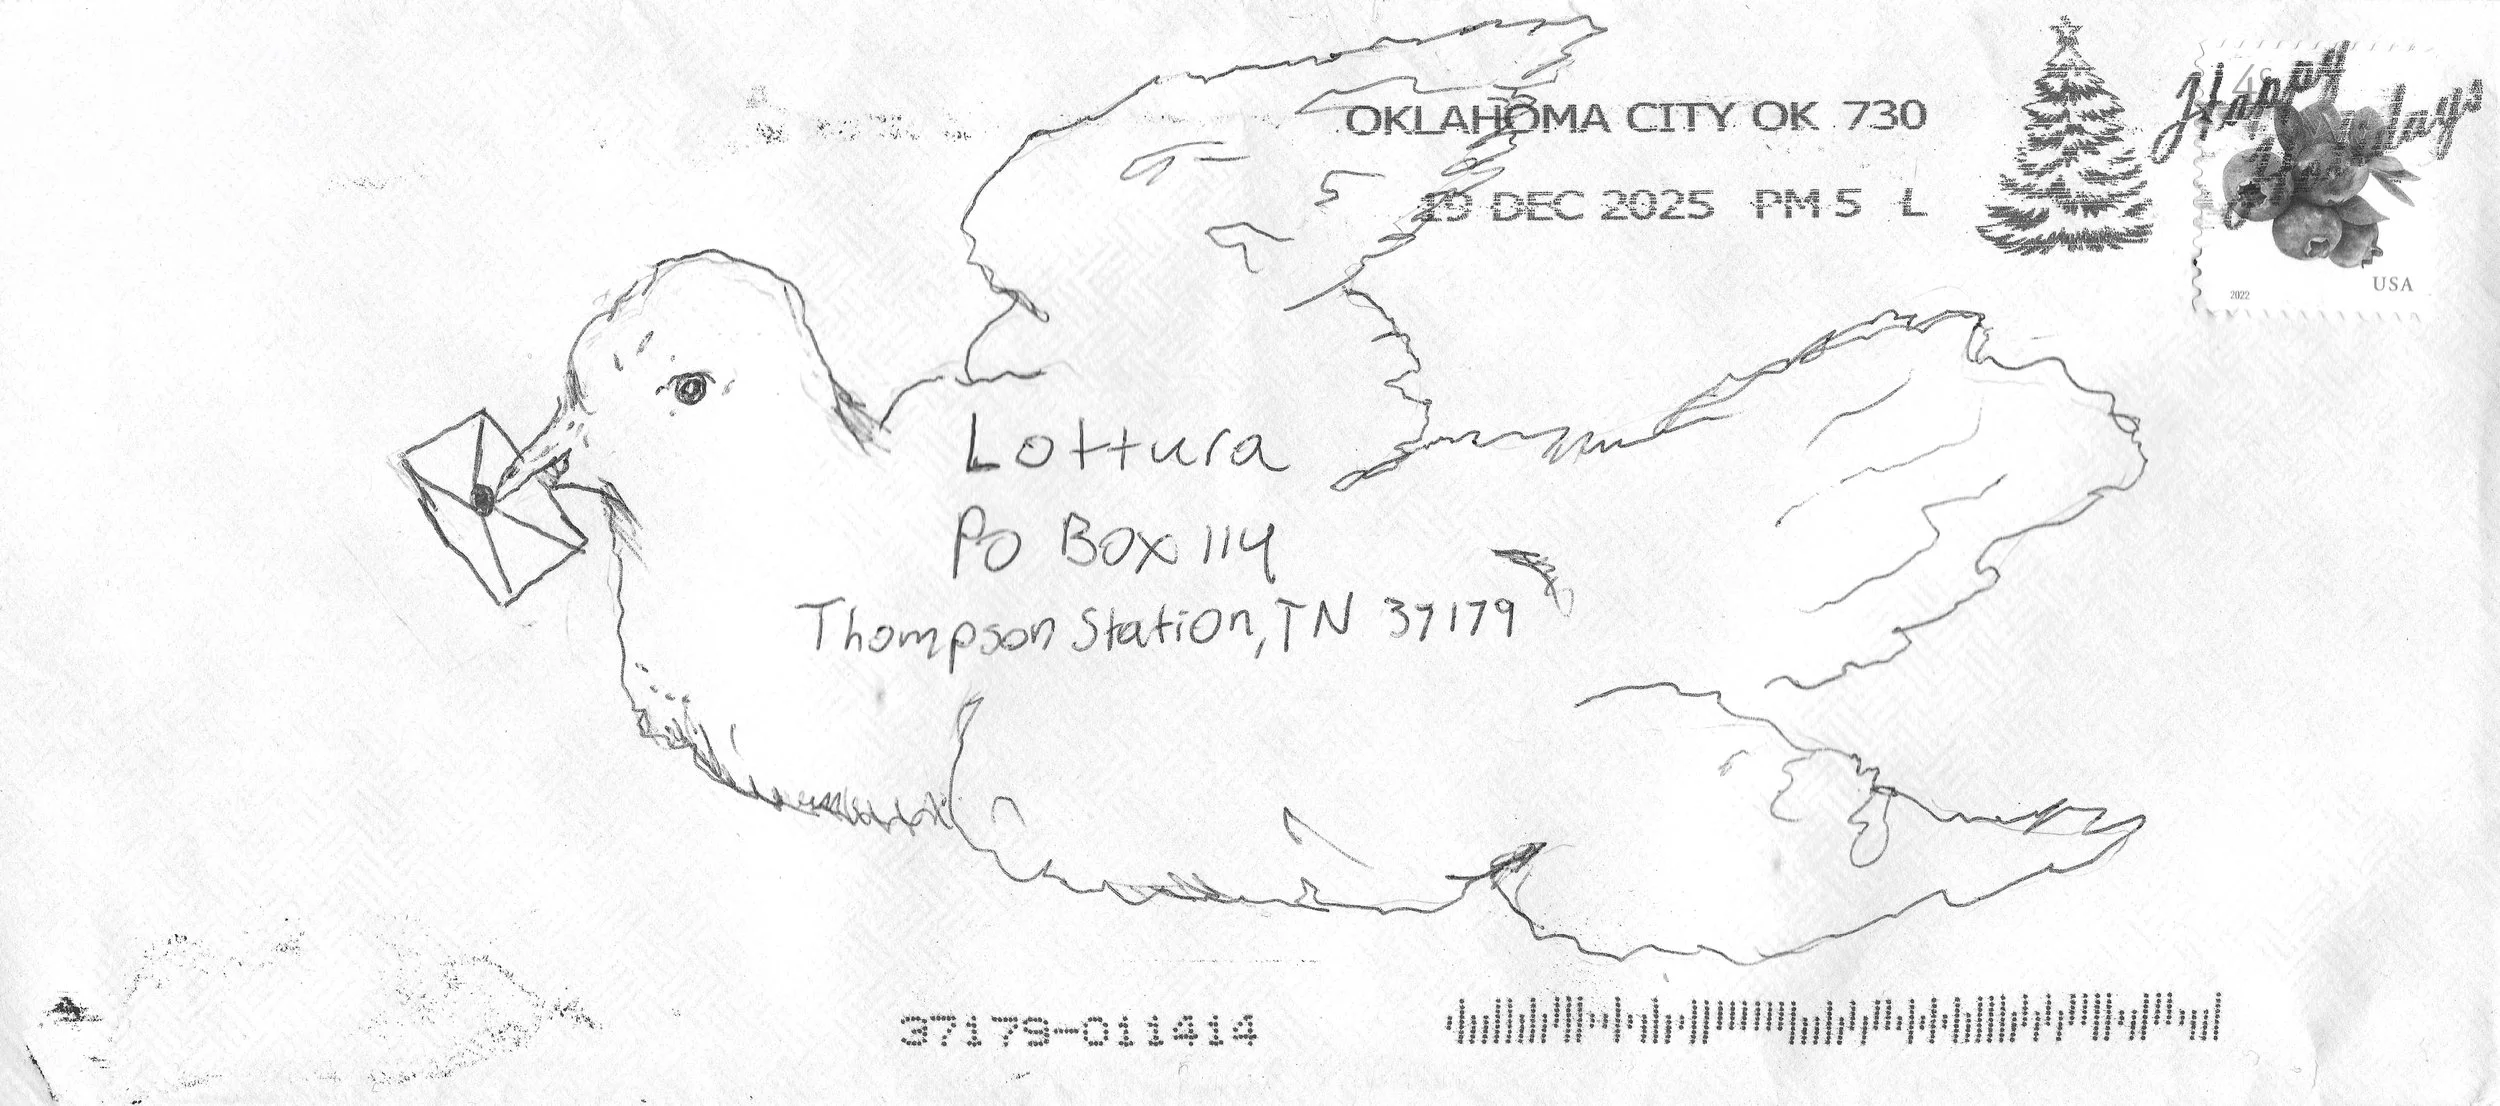 OKLAHOMA CITY OK 730
19 DEC 2025 PM 5 L
Happy
Holidays
4¢
USA
2022
Lottura
PO Box 114
Thompson Station, TN 37179
37179-011414